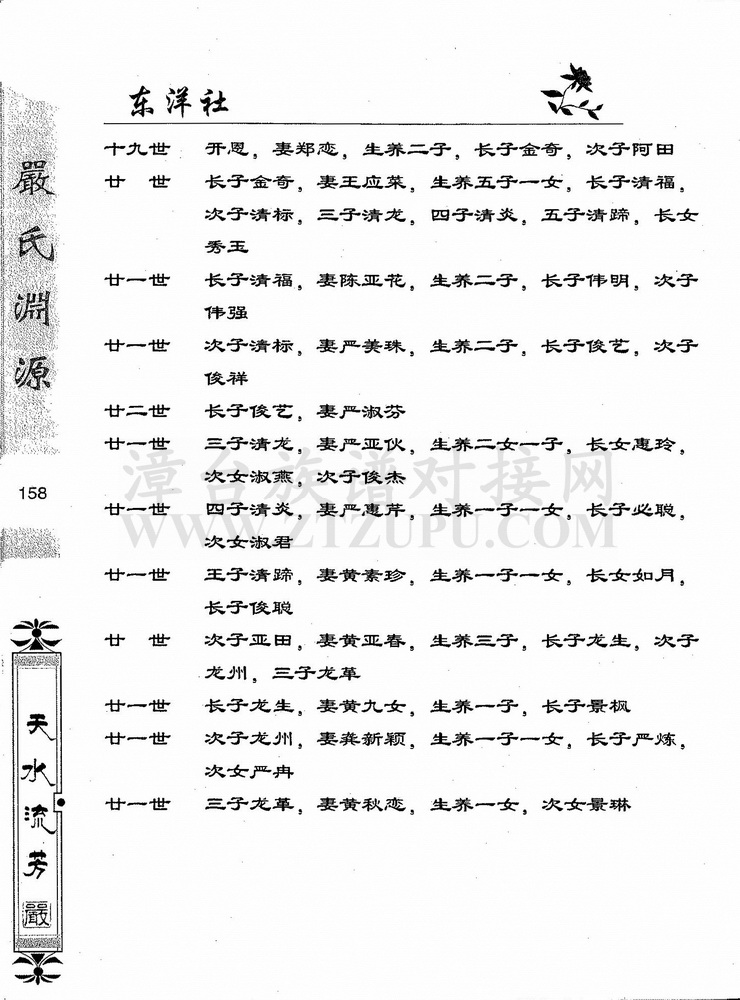 东洋社
十九世 开恩，妻郑恋，生养二子，长子金奇，次子阿田
廿 世 长子金奇，妻王应菜，生养五子一女，长子清福，
次子清标，三子清龙，四子清炎，五子清蹄，长女
秀玉
廿一世 长子清福，妻陈亚花，生养二子，长子伟明，次子
伟强
廿一世 次子清标，妻严美珠，生养二子，长子俊艺，次子
俊祥
廿二世 长子俊艺，妻严淑芬
廿一世 三子清龙，妻严亚伙，生养二女一子，长女惠玲，
次女淑燕，次子俊杰
廿一世 四子清炎，妻严惠芹，生养一子一女，长子必聪，
次女淑君
廿一世 王子清蹄，妻黄素珍，生养一子一女，长女如月，
长子俊聪
廿 世 次子亚田，妻黄亚春，生养三子，长子龙生，次子
龙州，三子龙革
廿一世 长子龙生，妻黄九女，生养一子，长子景枫
廿一世 次子龙州，妻龚新颖，生养一子一女，长子严炼，
次女严冉
廿一世 三子龙革，妻黄秋恋，生养一女，次女景琳
嚴氏淵源
158
天水流芳
嚴
漳台族谱对接网
WWW.ZTZUPU.COM